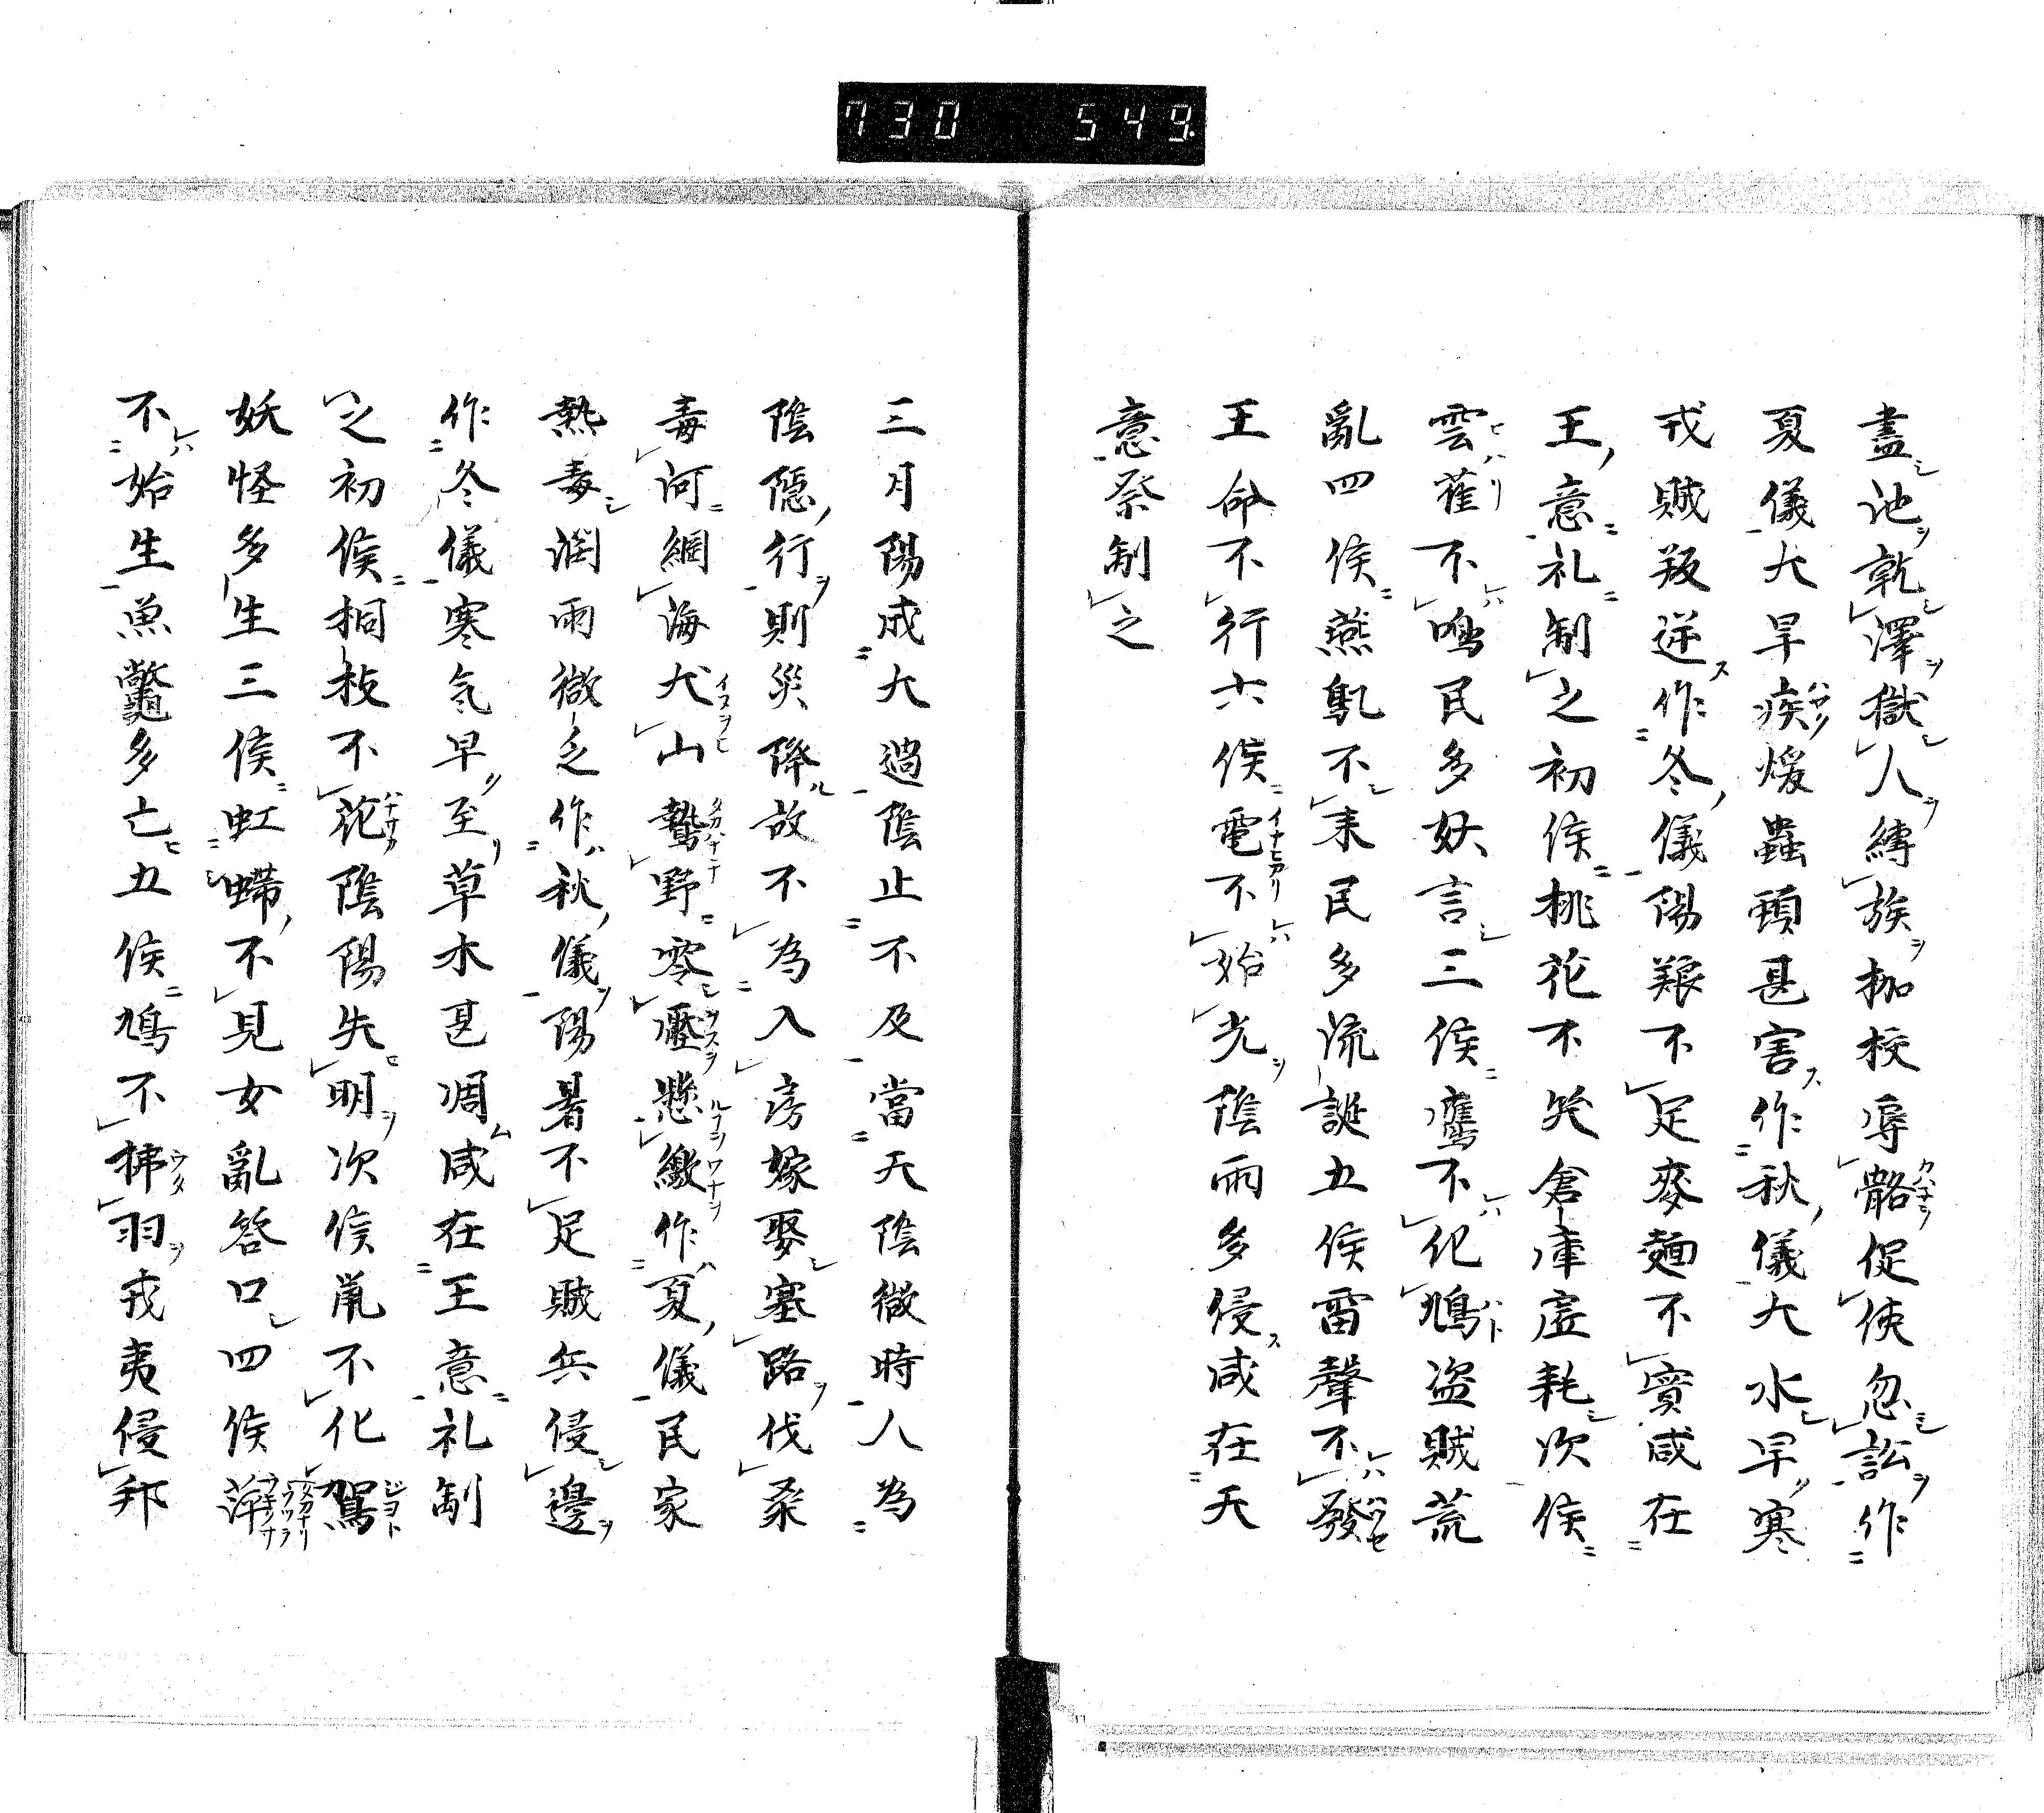 730 549
盡池乾澤獄人縛族枷校辱骼促使忽訟作
夏儀大旱疾煖蟲頭甚害作秋儀大水早寒
戎賊叛逆作冬儀陽艱不足麥麺不實咸在
王意礼制之初侯桃花不咲倉庫虛耗次侯
雲雀不鳴民多妖言三侯鷹不化鳩盗賊荒
亂四侯燕亂不来民多流誕五侯雷聲不發
王命不行六侯電不始光陰雨多侵咸在天
意祭制之
三月陽成大過陰止不及當天陰微時人為
陰隱行則災降故不為入房嫁娶塞路伐桒
毒河網海犬山鷙野零壓懸繳作夏儀民家
熱毒潤雨微乏作秋儀陽暑不足賊兵侵邊
作冬儀寒氣早至草木甚凋咸在王意礼制
之初侯桐枝不花陰陽失明次侯鼡不化鴽
妖怪多生三侯虹蝃不見女亂咎口四侯萍
不始生魚鼈多亡五侯鳩不拂羽戎夷侵邦